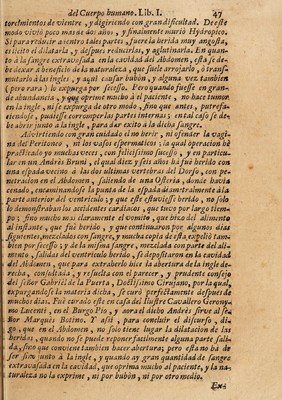 del Cuerpo humano. Lib. I. 47
torcimientos de vientre, y digiriendo con gran dificultad. De este
modo vivió poco mas de dos años, y finalmente murió Hydropico.
Si para reducir adentro tales partes, fuere la herida muy angosta,
es licito el dilatarla, y despues reducirlas, y aglutinarla. En quan-
to à la sangre extravasada en la cavidad del Abdomen, esta se de-
be dexar à beneficio de la naturaleza, que suele arrojarlo, ò trans-
mutarlo à las ingles, y aquì causar bubòn, y alguna vez tambien
(pero rara) lo expurga por secesso. Pero quando fuesse en gran-
de abundancia, y que oprime mucho à el paciente, no hace tumor
en la ingle, ni se expurga de otro modo, sino que antes, putrefa-
ciendose, pudiesse corromper las partes internas; en tal caso se de-
be abrir junto à la ingle, para dar exito à la dicha sangre.
Advirtiendo con gran cuidado el no herir, ni ofender la vagi-
na del Peritoneo, ni los vasos espermatico: la qual operacion hè
practicado yo muchas veces, con felicissimo sucesso, y en particu-
lar en un Andrès Bruni, el qual diez y seis años hà fuè herido con
una espada vecino à las dos ultimas vertebras del Dorso, con pe-
netracion en el Abdomen, saliendo de una Osterìa, donde havia
cenado, encaminandose la punta de la espada diametralmente à la
parte anterior del ventriculo; y que este estuviesse herido, no solo
lo demonstraban los accidentes cardiacos, que tuvo por largo tiem-
po; sino mucho mas claramente el vomito, que hizo del alimento
al instante, que fuè herido, y que continuaron por algunos dias
siguientes, mezclados con sangre, y mucha copia de esta expeliò tam-
bien por secesso; y de la misma sangre, mezclada con parte del ali-
mento, salidas del ventriculo herido, se depositaron en la cavidad
del Abdomen, que para extraherlo hice la abertura de la ingle de-
recha, consultada, y resuelta con el parecer, y prudente consejo
del señor Gabriel de la Puerta, Doctissimo Cirujano, por la qual,
expurgandose la materia dicha, se curò perfectamente despues de
muchos dias. Fuè curado este en casa del Ilustre Cavallero Gerony-
mo Lucenti, en el Burgo Pio, y aora el dicho Andrès sirve al se-
ñor Marquès Botino. Y assi, para concluir el discurso, di-
go, que en el Abdomen, no solo tiene lugar la dilatacion de las
heridas, quando no se puede reponer facilmente alguna parte sali-
da, sino que conviene tambien hacer abertura; pero esta no ha de
ser sino junto à la ingle, y quando ay gran quantidad de sangre
extravasada en la cavidad, que oprima mucho al paciente, y la na-
turaleza no la exprime, ni por bubòn, ni por otro medio.